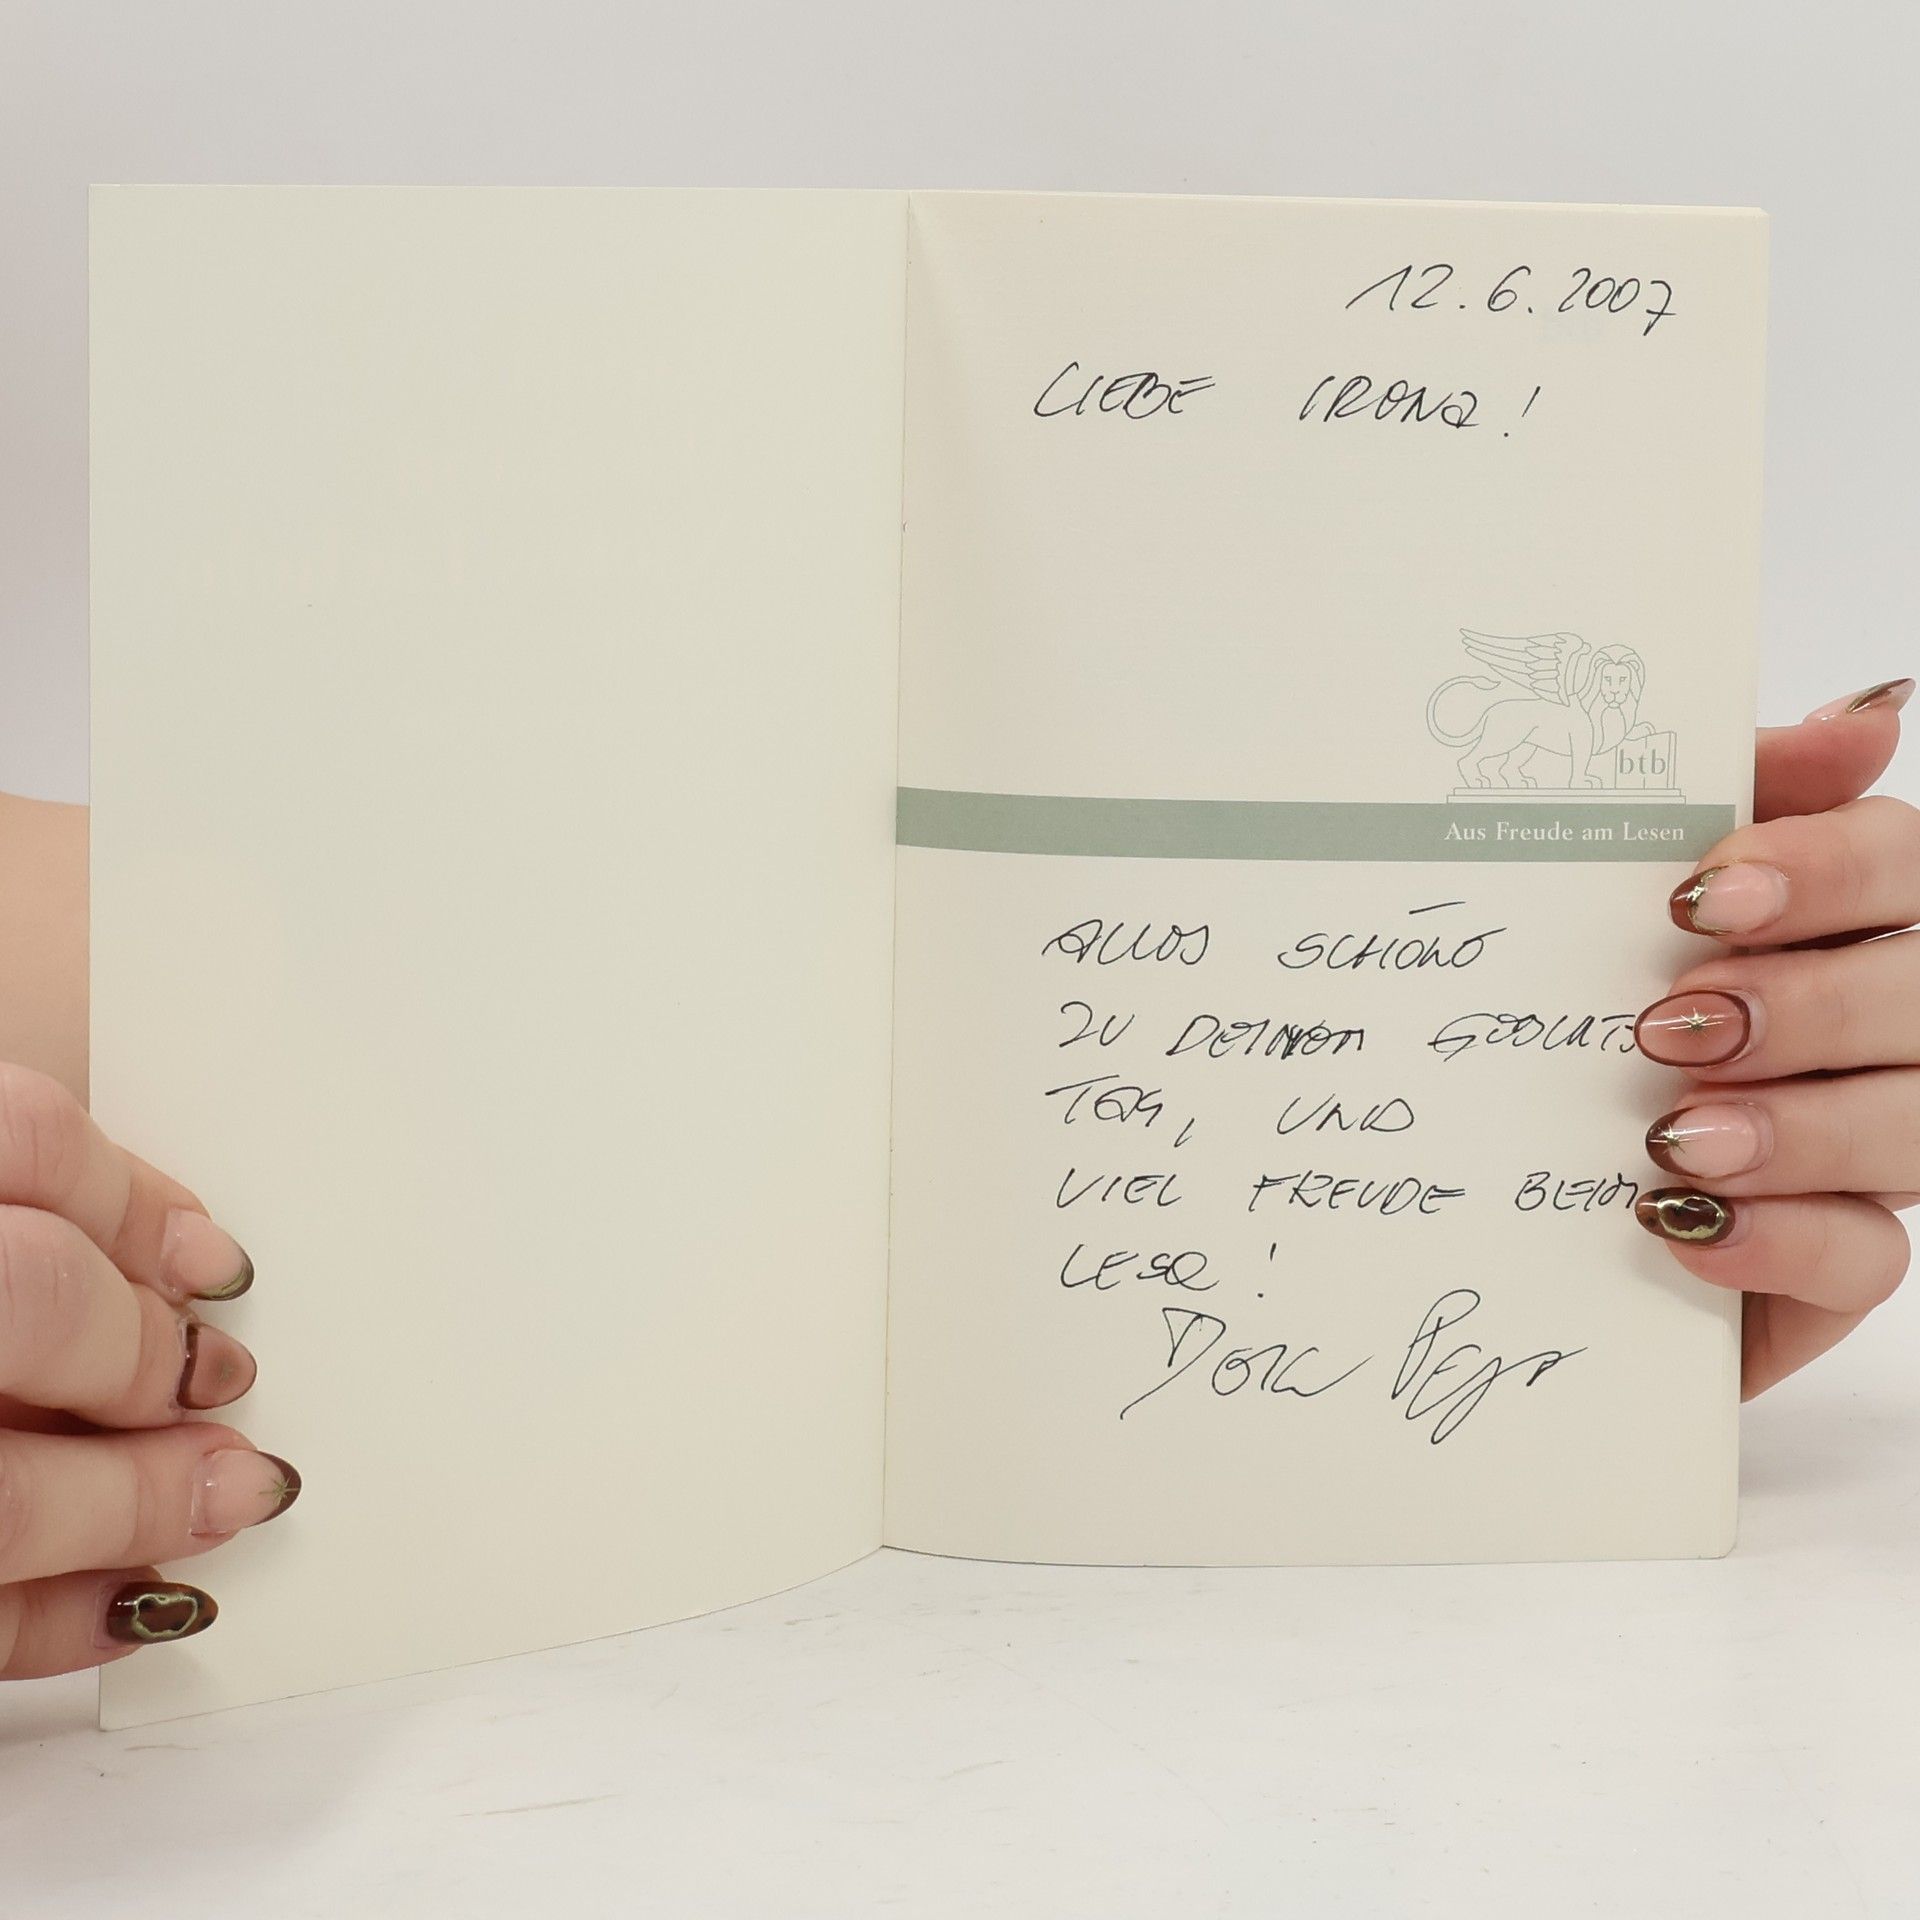 12.6.2007
LIEBE IRENA!
btb
Aus Freude am Lesen
ALLES SCHÖNE
ZU DEINEM GEBURTS
TAG, UND
VIEL FREUDE BEIM
LESEN!